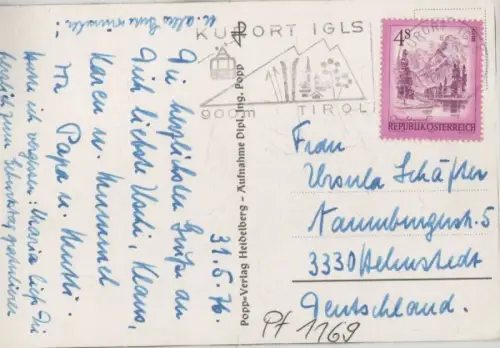 KURORT IGLS
900m TIROL
4S
REPUBLIK ÖSTERREICH
31.5.76
Die herzlichsten Grüße an
Dich liebste Uschi, Klaus,
Karen u. Hummel
Papa u. Mutti.
vergessen: Maria läßt Dir
herzlich zum Geburtstag gratulieren
u. alles Gute wünschen!
Popp-Verlag Heidelberg - Aufnahme Dipl. Ing. Popp
Frau
Ursula Schäfter
Naumburgerstr. 5
3330 Helmstedt
Deutschland.
Pf 1169